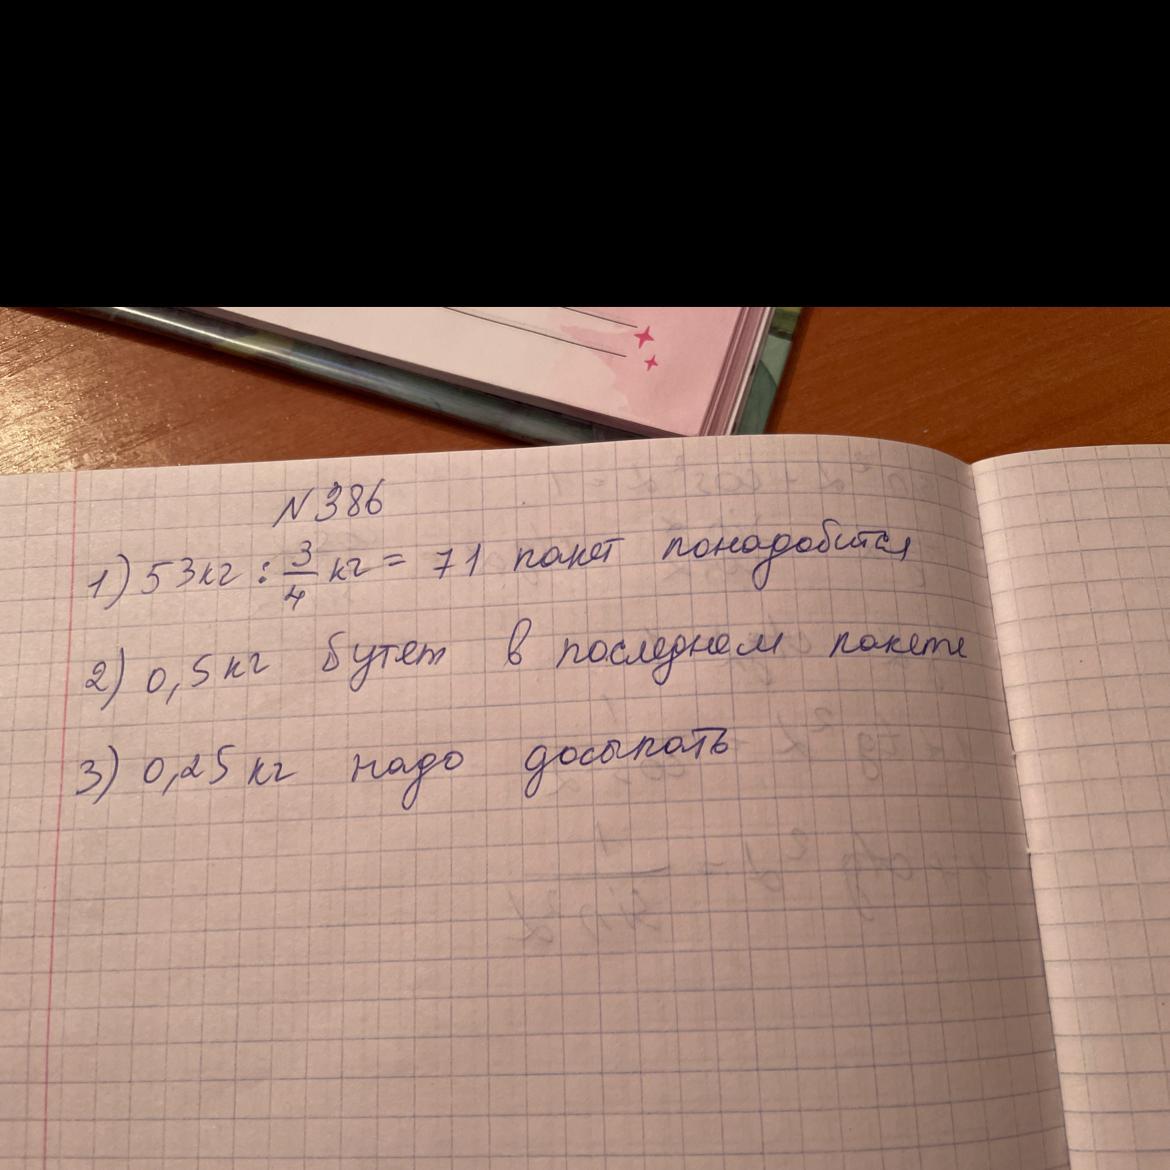 N 386
1) 53 кг : 3/4 кг = 71 пакет понадобится
2) 0,5 кг бутет в последнем пакете
3) 0,25 кг надо досыпать